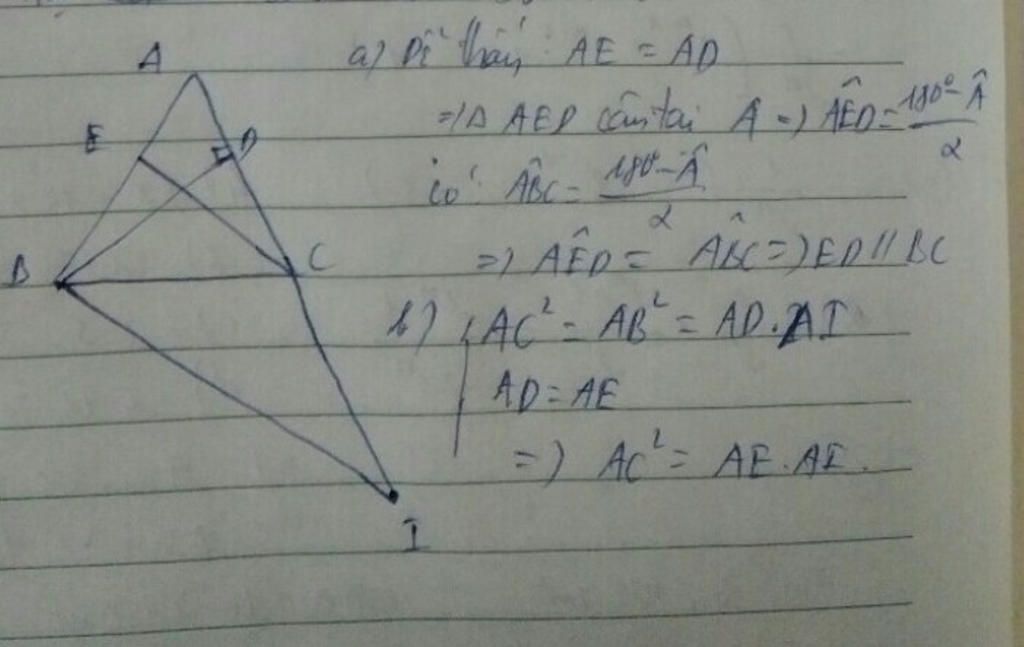 A
E
D
B
C
I
a) Dễ thấy: AE = AD
=> Δ AED cân tại A => AÊD = (180° - Â)/2
Có: AB̂C = (180° - Â)/2
=> AÊD = AB̂C => ED // BC
b) { AC² = AB² = AD.AI
AD = AE
=> AC² = AE.AI.